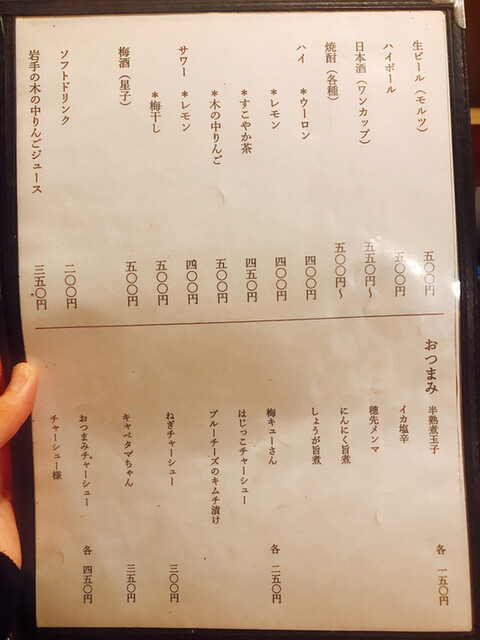 生ビール（モルツ） 五〇〇円
ハイボール 五〇〇円
日本酒（ワンカップ） 五五〇円〜
焼酎（各種） 五〇〇円〜
ハイ ＊ウーロン 四〇〇円
＊レモン 四〇〇円
＊すこやか茶 四五〇円
＊木の中りんご 五〇〇円
サワー ＊レモン 四〇〇円
＊梅干し 五〇〇円
梅酒（星子） 五〇〇円
ソフトドリンク 二〇〇円
岩手の木の中りんごジュース 三五〇円
おつまみ
半熟煮玉子 各 一五〇円
イカ塩辛
穂先メンマ
にんにく旨煮
しょうが旨煮
梅キューさん 各 二五〇円
はじっこチャーシュー
ブルーチーズのキムチ漬け
ねぎチャーシュー 三〇〇円
キャベタマちゃん 三五〇円
おつまみチャーシュー 各 四五〇円
チャーシュー様